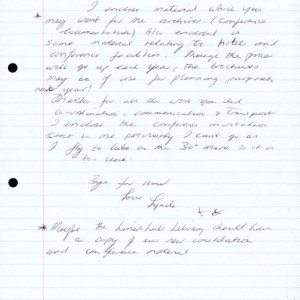 I enclose material which you
* may want for the archives. (Conference
documentation) Also enclosed is
some material relating to hotels and
conference facilities. Though the prices
will go up each year, the brochures
may be of use for planning purposes
next year!
Thanks for all the work you did
co-ordination, communication & transport
I enclose the conference invitation
sent to me previously I can't go as
I fly to on the 30th so it is
too close.
Bye for now
Love Lynda
x x
* Maybe the Library should have
a copy of our new constitution
and conference material